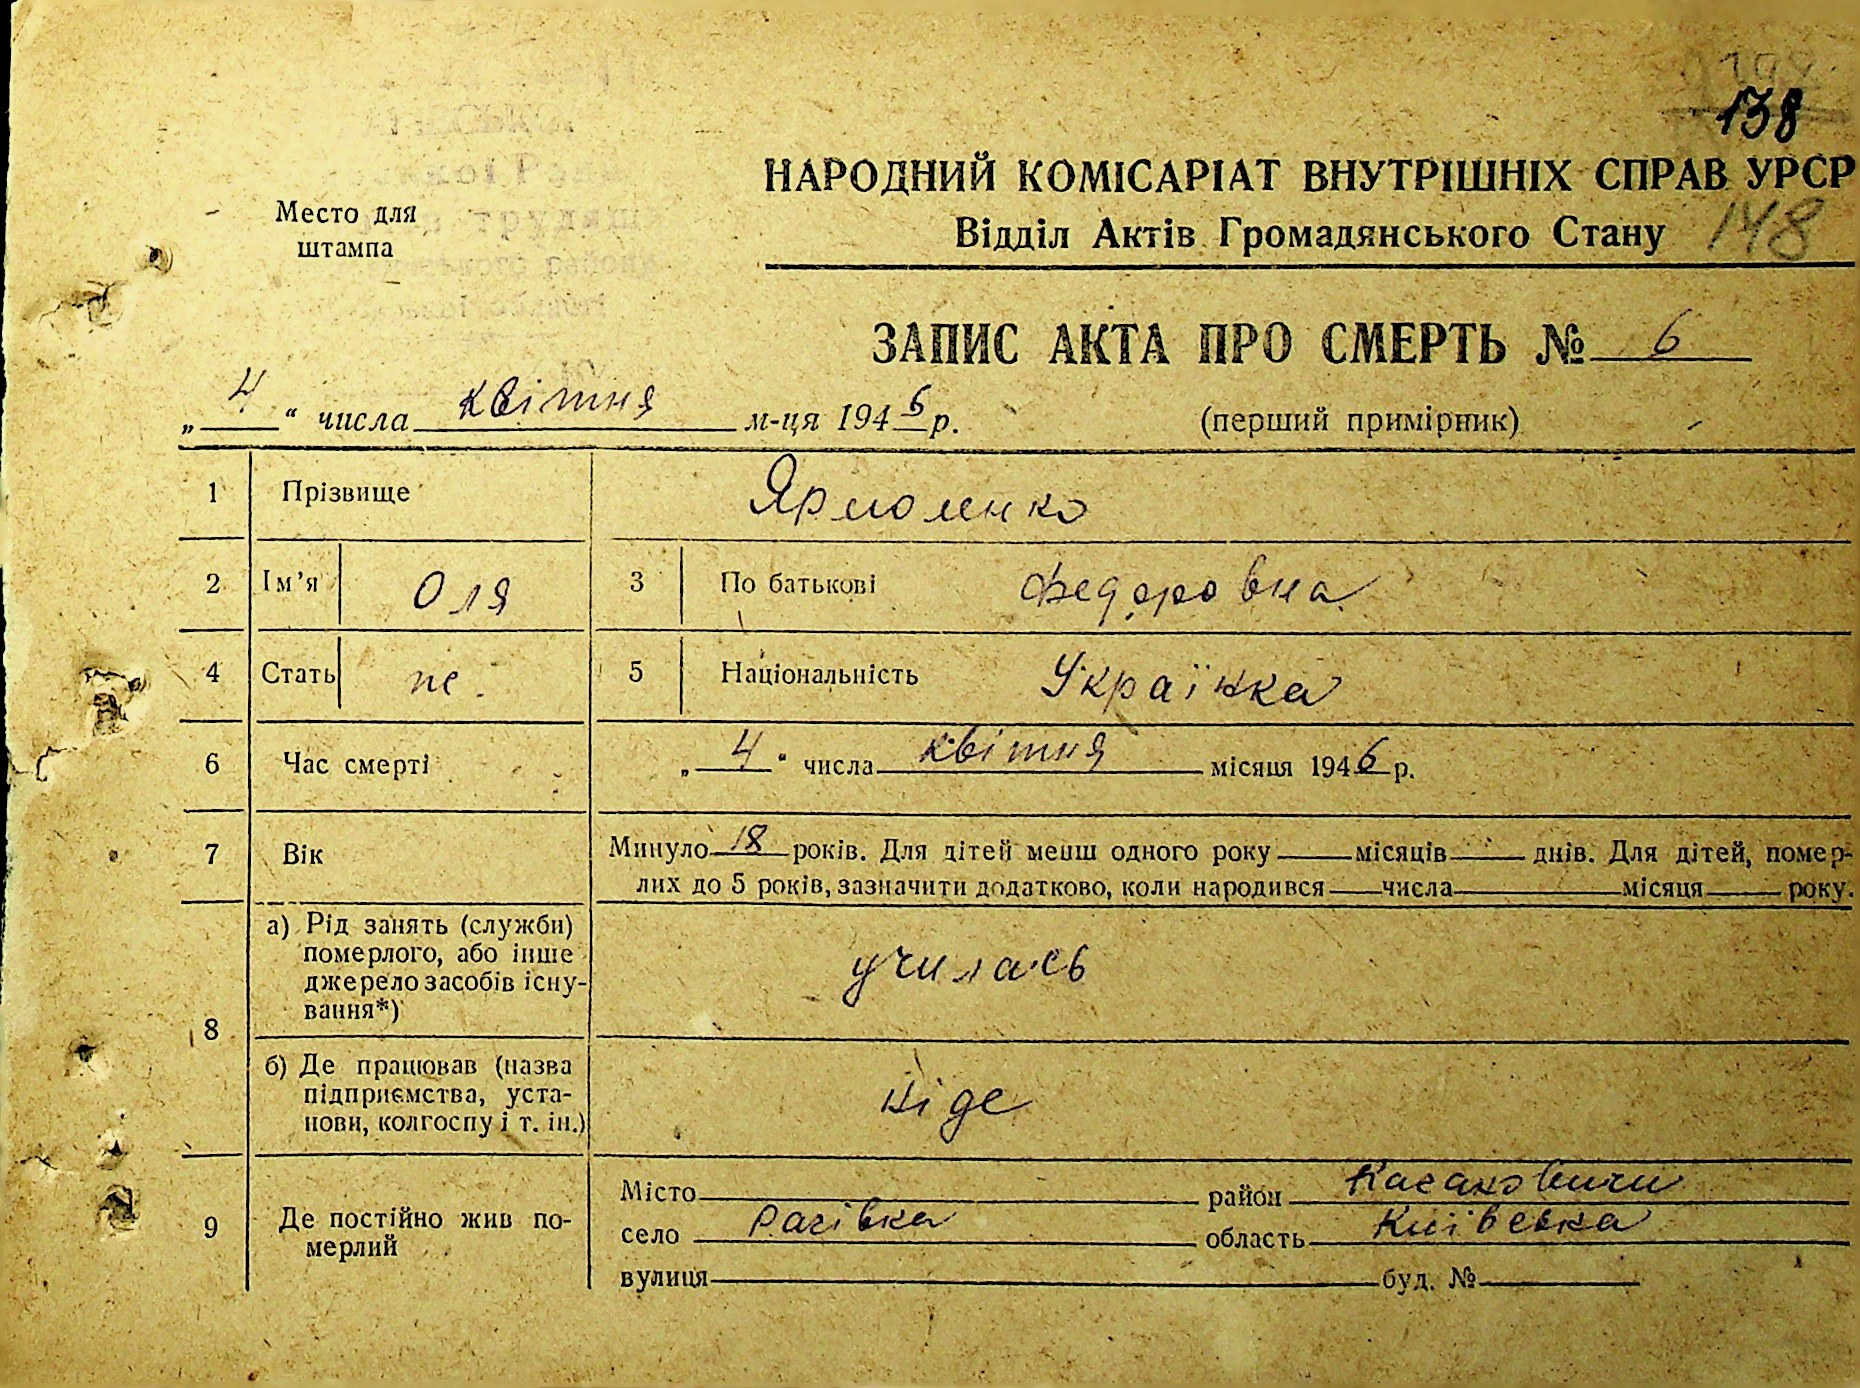 138
НАРОДНИЙ КОМІСАРІАТ ВНУТРІШНІХ СПРАВ УРСР
Место для штампа
Відділ Актів Громадянського Стану 148
ЗАПИС АКТА ПРО СМЕРТЬ № 6
„4“ числа квітня м-ця 1946 р. (перший примірник)
1 Прізвище Ярмоленко
2 Ім’я Оля 3 По батькові Федоровна
4 Стать 5 Національність Українка
6 Час смерті „4“ числа квітня місяця 1946 р.
7 Вік Минуло 18 років. Для дітей менш одного року місяців днів. Для дітей, помер-
лих до 5 років, зазначити додатково, коли народився числа місяця року.
8 а) Рід занять (служби)
померлого, або інше
джерело засобів існу-
вання*)
училась
б) Де працював (назва
підприємства, уста-
нови, колгоспу і т. ін.)
ніде
9 Де постійно жив по-
мерлий
Місто район
село область Київська
вулиця буд. №